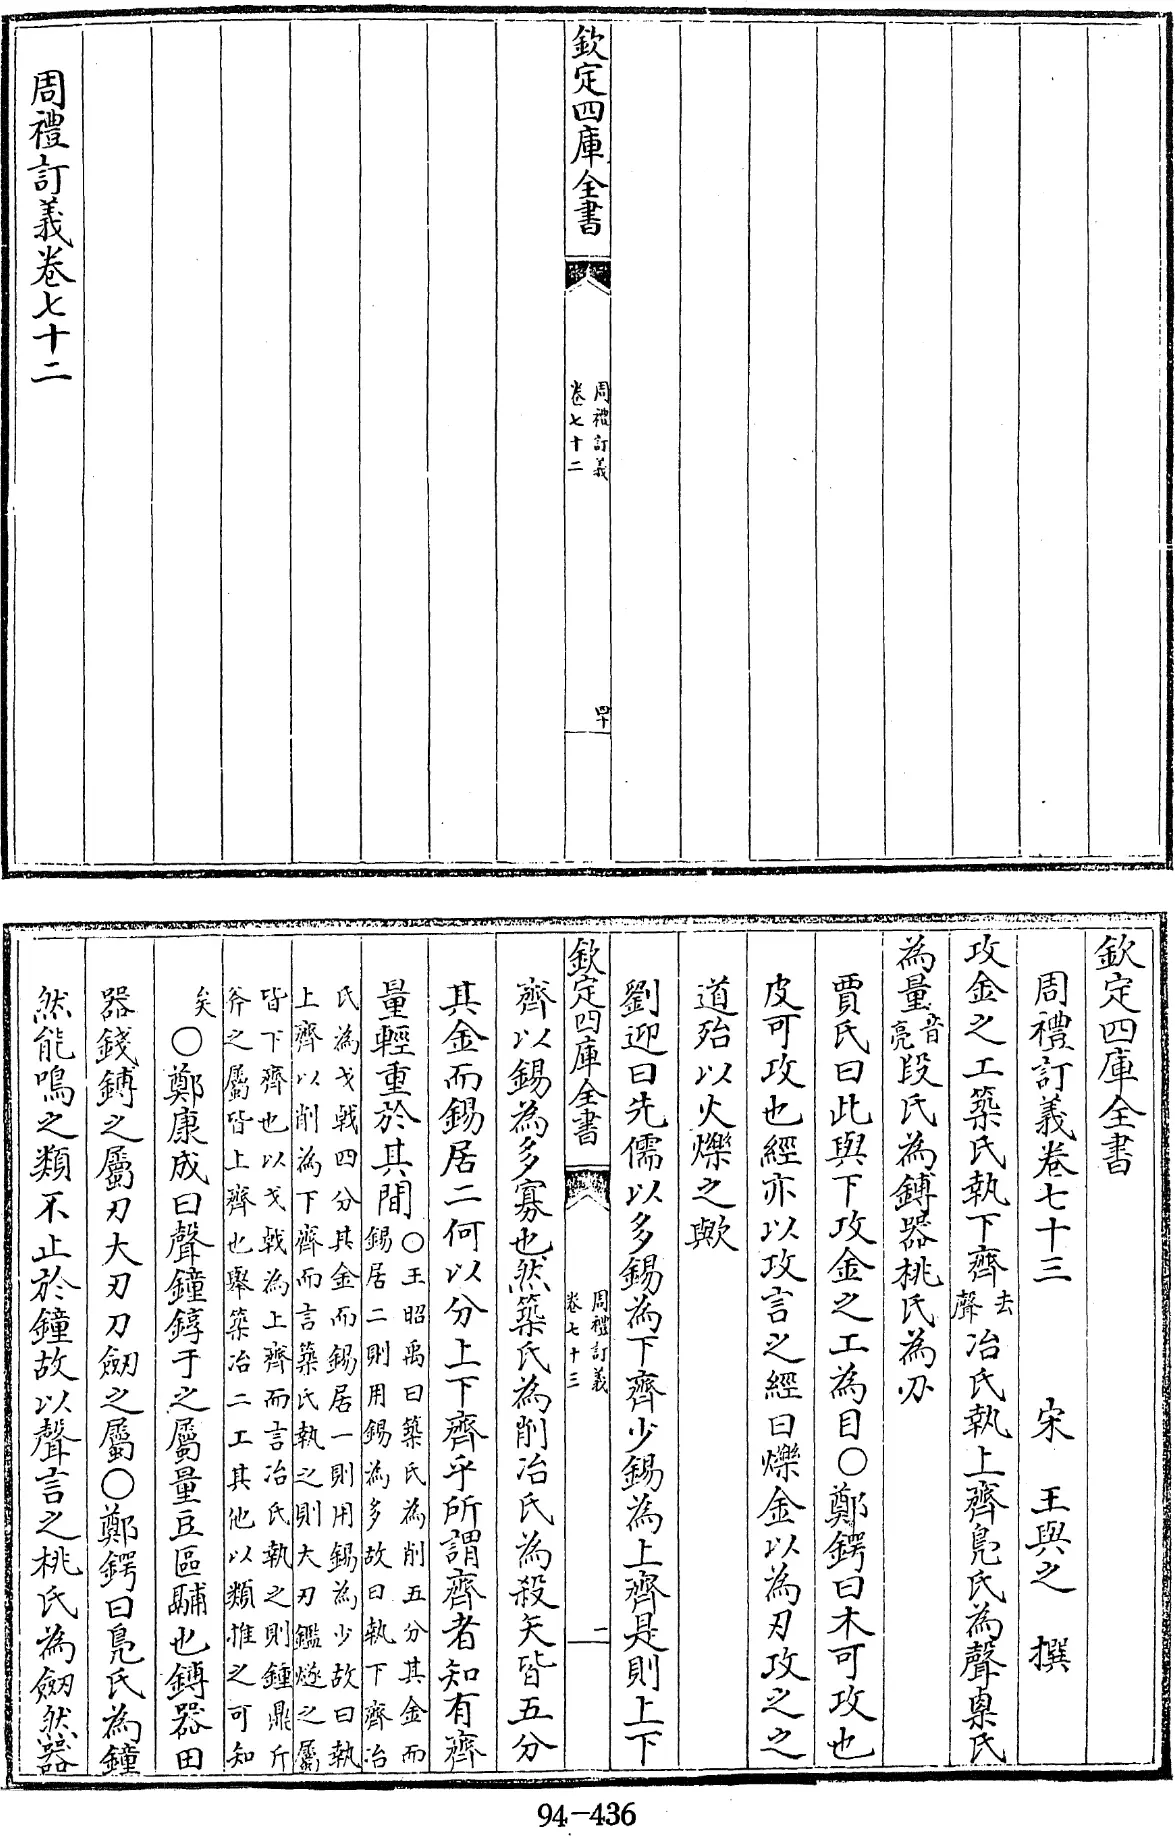 欽定四庫全書
周禮訂義
卷七十二
四十
周禮訂義卷七十二
欽定四庫全書
周禮訂義卷七十三 宋 王與之 撰
攻金之工築氏執下齊去聲冶氏執上齊鳧氏為聲㮚氏
為量音亮段氏為鎛器桃氏為刃
賈氏曰此與下攻金之工為目○鄭鍔曰木可攻也
皮可攻也經亦以攻言之經曰爍金以為刃攻之之
道殆以火爍之歟
劉迎曰先儒以多錫為下齊少錫為上齊是則上下
欽定四庫全書
周禮訂義
卷七十三
一
齊以錫為多寡也然築氏為削冶氏為殺矢皆五分
其金而錫居二何以分上下齊乎所謂齊者知有齊
量輕重於其間○王昭禹曰築氏為削五分其金而
錫居二則用錫為多故曰執下齊冶
氏為戈戟四分其金而錫居一則用錫為少故曰執
上齊以削為下齊而言築氏執之則大刃鑑燧之屬
皆下齊也以戈戟為上齊而言冶氏執之則鍾鼎斤
斧之屬皆上齊也舉築冶二工其他以類推之可知
矣○鄭康成曰聲鐘錞于之屬量豆區鬴也鎛器田
器錢鎛之屬刃大刃刀劒之屬○鄭鍔曰鳧氏為鐘
然能鳴之類不止於鐘故以聲言之桃氏為劒然器
94-436